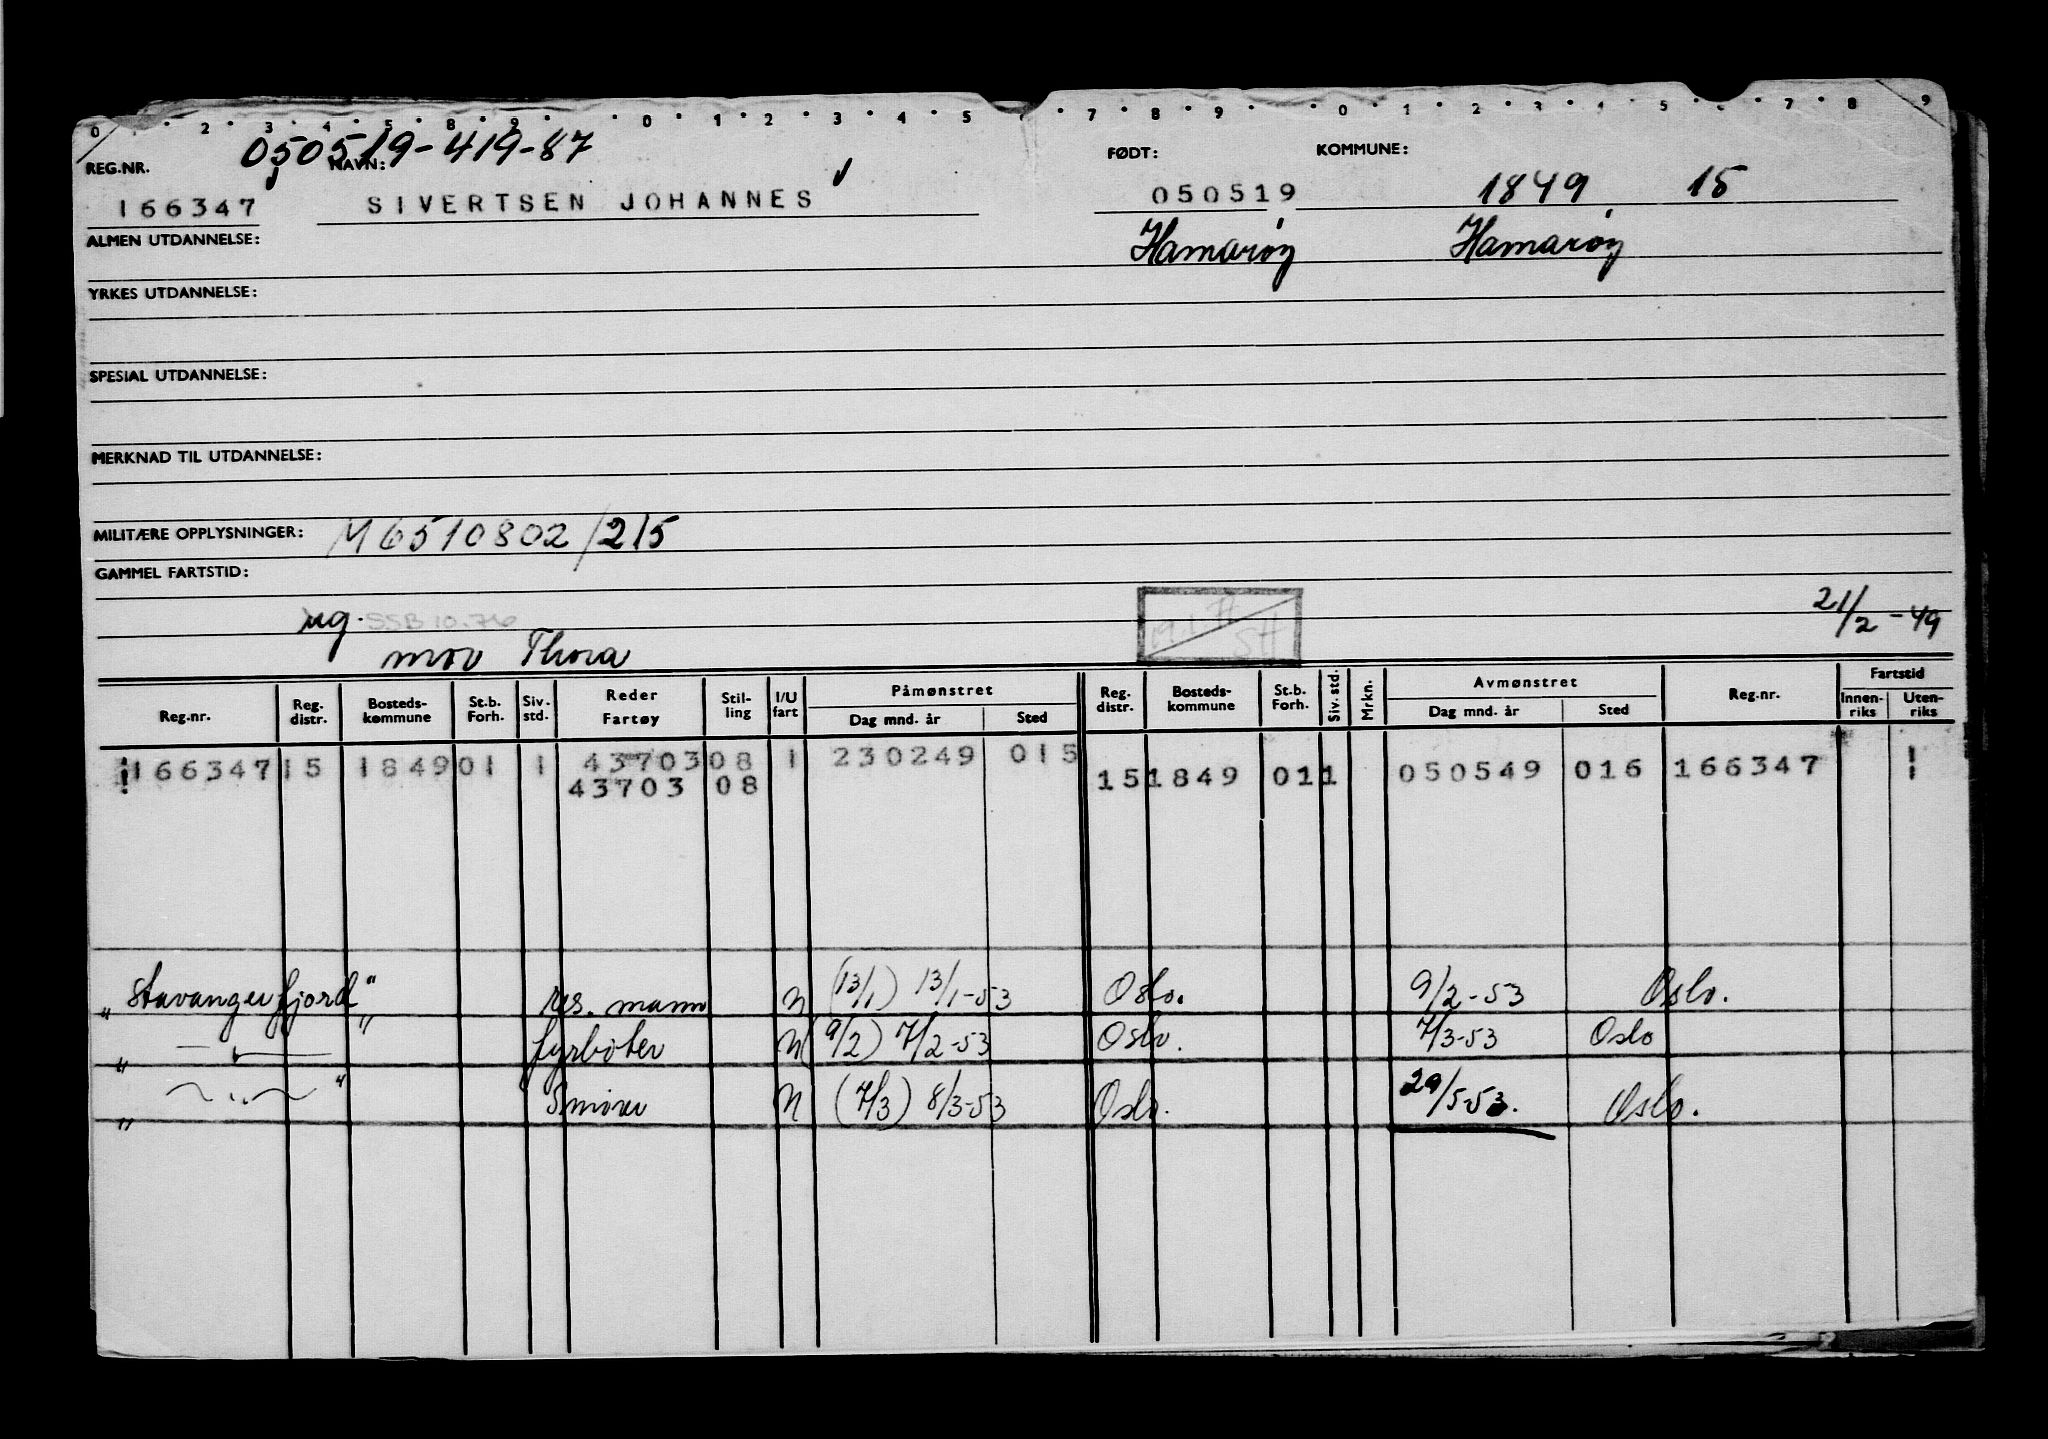 0 . 2 . 3 . 4 . 5 . 8 . 9 . 0 . 1 . 2 . 3 . 4 . 5 7 . 8 . 9 . 0 . 1 . 2 . 3 . 4 . 5 . 7 . 8 9
050519-419-87
REG.NR. NAVN: FØDT: KOMMUNE:
166347 SIVERTSEN JOHANNES 050519 1849 15
ALMEN UTDANNELSE: Hamarøy Hamarøy
YRKES UTDANNELSE:
SPESIAL UTDANNELSE:
MERKNAD TIL UTDANNELSE:
MILITÆRE OPPLYSNINGER: M6510802/215
GAMMEL FARTSTID:
reg. SSB 10.76 21/2-49
mor Thora
Reg.nr. Reg. distr. Bosteds-kommune St.b. Forh. Siv. std. Reder Fartøy Stil-ling I/U fart Påmønstret Dag mnd. år Sted Reg. distr. Bosteds-kommune St.b. Forh. Siv. std. Mrkn. Avmønstret Dag mnd. år Sted Reg.nr. Fartstid Innen-riks Uten-riks
166347 15 1849 01 1 43703 08 1 230249 015
43703 08 15 1849 01 1 050549 016 166347
"Stavangerfjord" res. mann U (13/1) 13/1-53 Oslo. 9/2-53 Oslo.
" — " — " fyrbøter U (9/2) 7/2-53 Oslo. 7/3-53 Oslo
" — " — " Smører U (7/3) 8/3-53 Oslo. 29/5-53. Oslo.